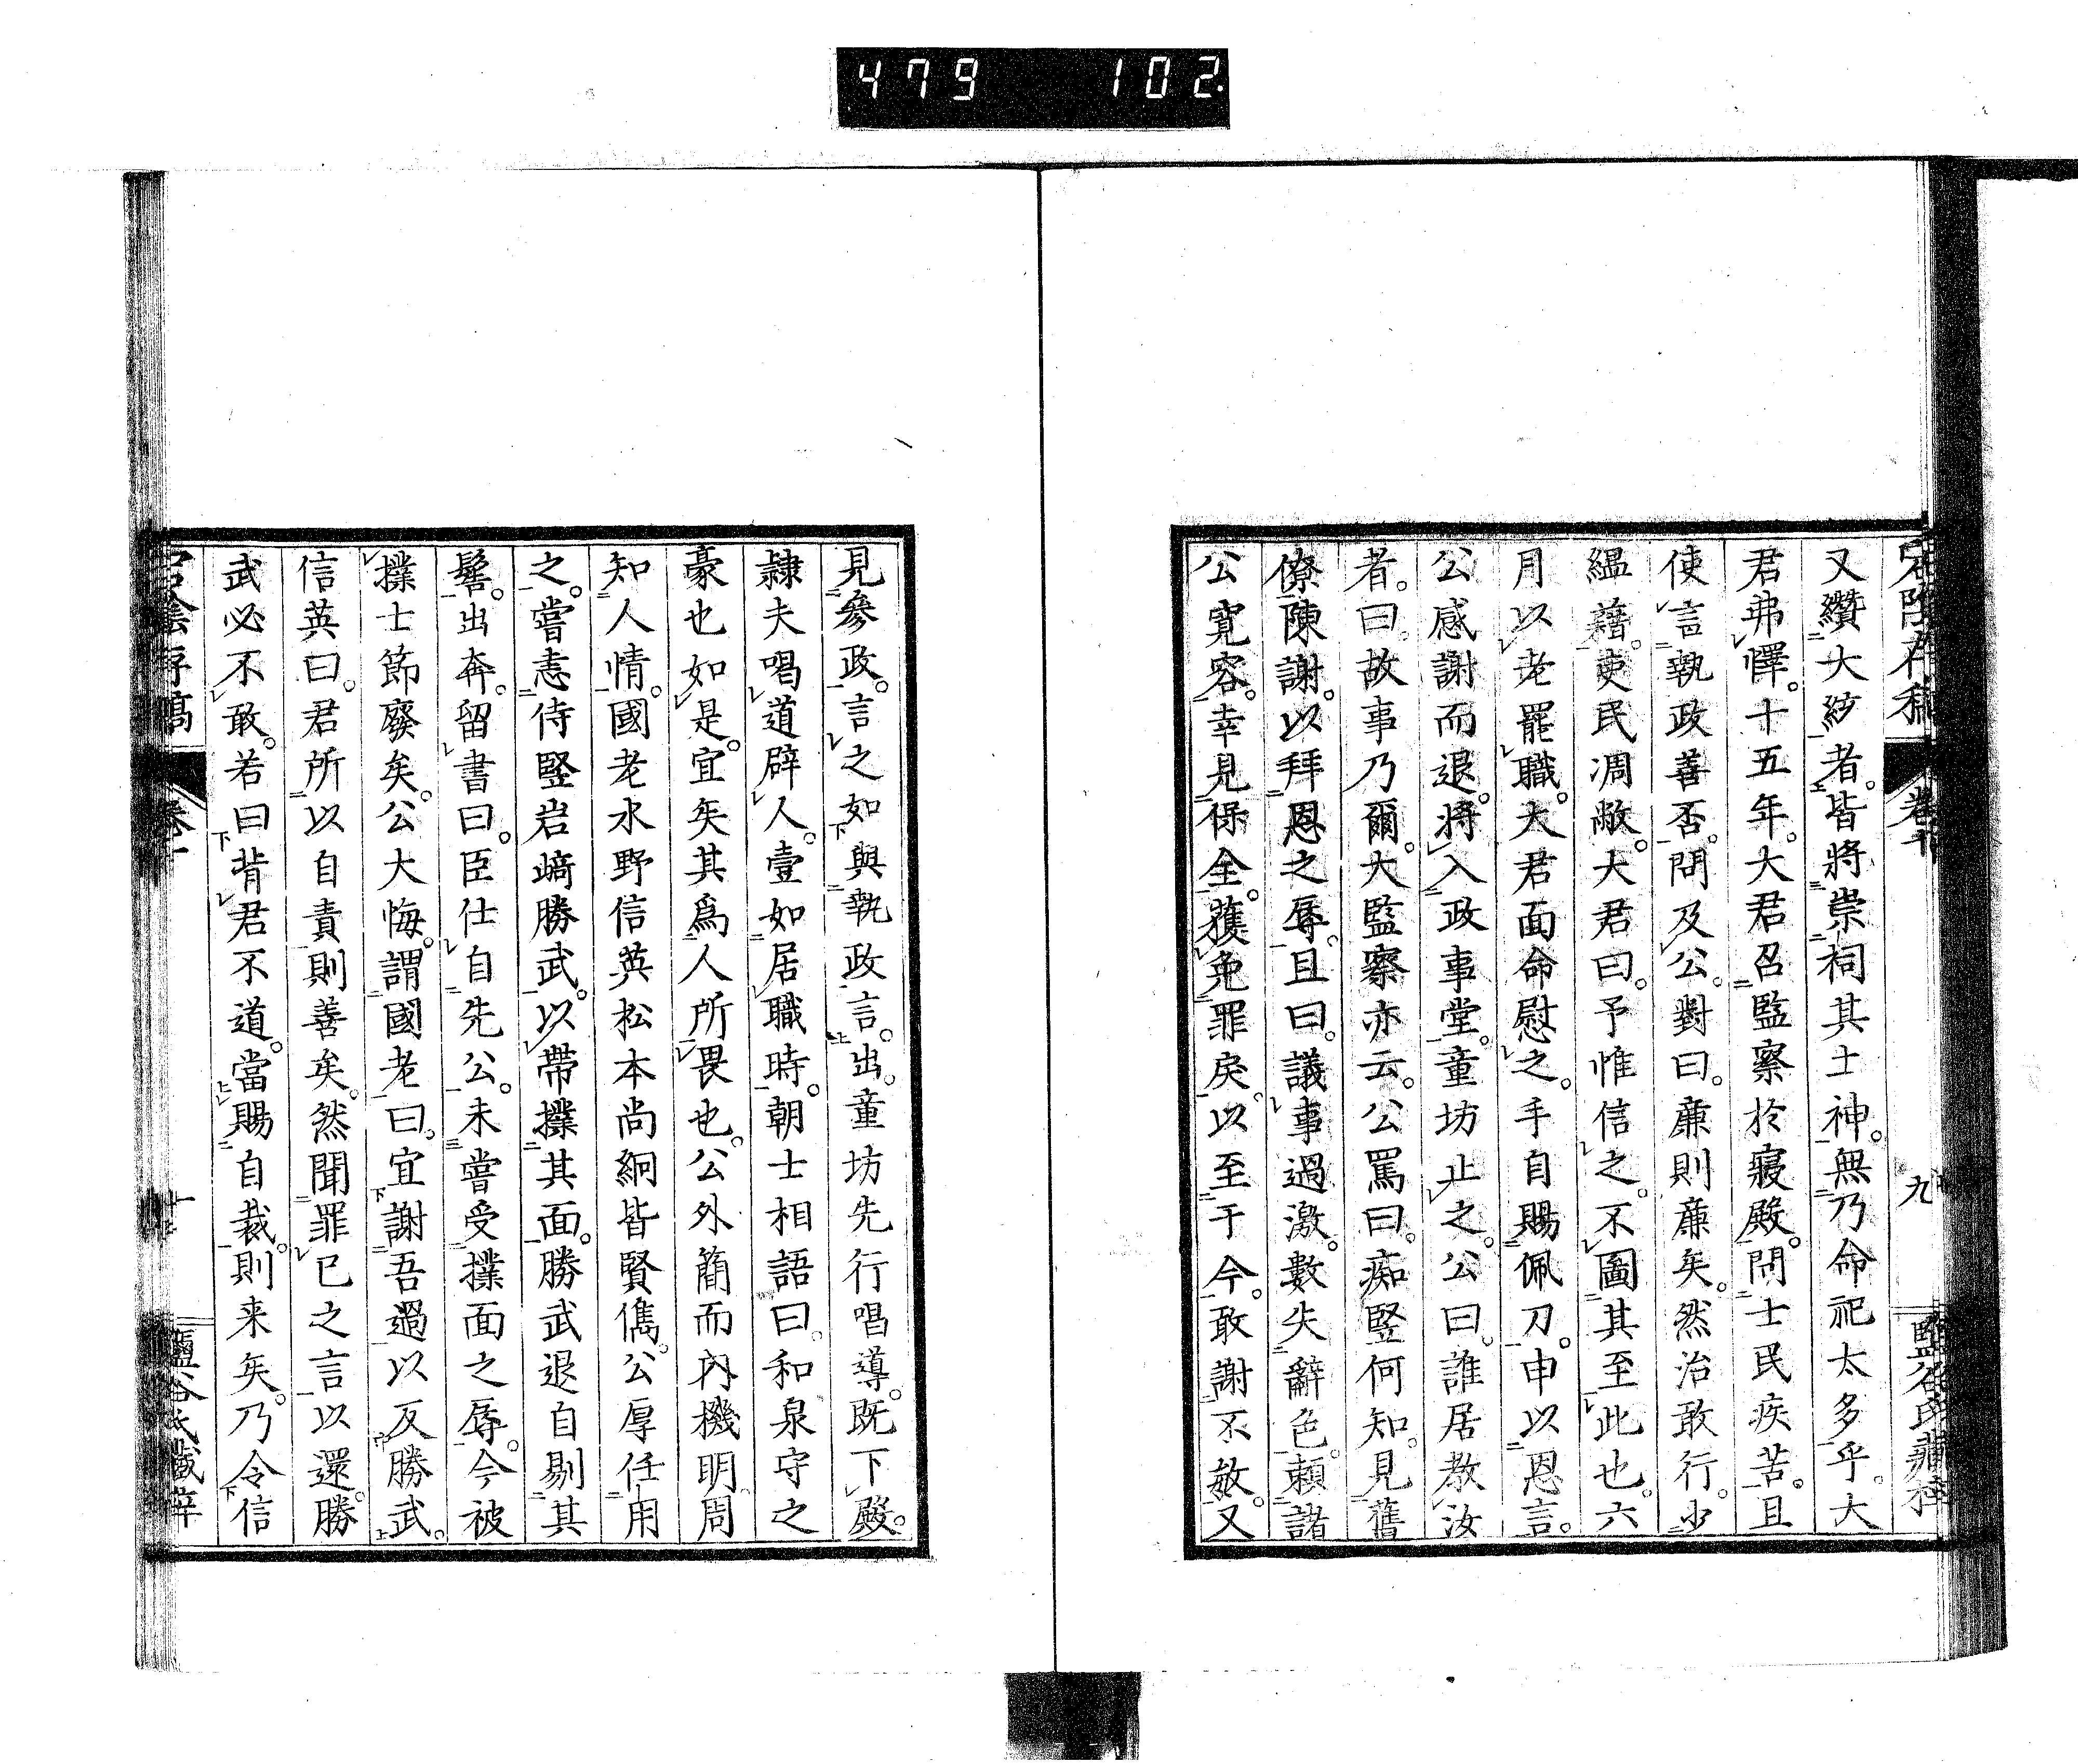 479 102
宕陰存稿 卷十 九
又纘大紗者。皆將崇祠其士神。無乃命祀太多乎。大
君弗懌。十五年。大君召監察於寢殿。問士民疾苦。且
使言執政善否。問及公。對曰。廉則廉矣。然治敢行。少
縕藉。吏民凋敝。大君曰。予惟信之。不圖其至此也。六
月以老罷職。大君面命慰之。手自賜佩刀。申以恩言。
公感謝而退。將入政事堂。童坊止之。公曰。誰居教汝
者。曰。故事乃爾。大監察亦云。公罵曰。痴豎何知。見舊
僚陳謝。以拜恩之辱。且曰。議事過激。數失辭色。賴諸
公寬容。幸見保全。獲免罪戾。以至于今。敢謝不敏。又
見參政。言之如與執政言。出。童坊先行唱導。既下殿。
隷夫喝道辟人。壹如居職時。朝士相語曰。和泉守之
豪也如是。宜矣其爲人所畏也。公外簡而內機明。周
知人情。國老水野信英松本尚絅皆賢儁。公厚任用
之。嘗恚侍豎岩崎勝武。以帶撲其面。勝武退自剔其
髻。出奔。留書曰。臣仕自先公。未嘗受撲面之辱。今被
撲士節廢矣。公大悔。謂國老曰。宜謝吾過以反勝武。
信英曰。君所以自責則善矣。然聞罪已之言以還。勝
武必不敢。若曰背君不道。當賜自裁。則来矣。乃令信
宕陰存稿 卷十 十 鹽谷氏藏梓